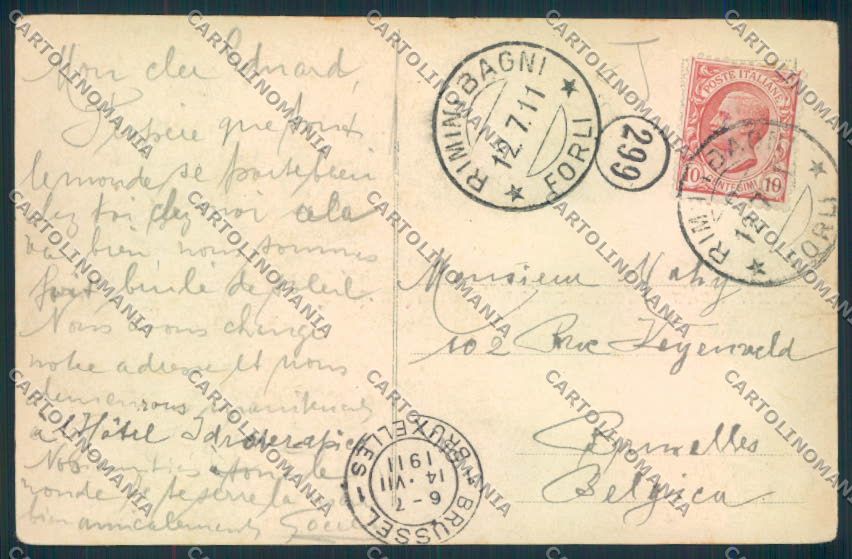 Mon cher Eduard,
J'espère que tout
le monde se porte bien
chez toi chez moi cela
va bien, nous sommes
fort brulé de soleil.
Nous avons changé
notre adresse et nous
demeurons maintenant
à l'Hôtel Idroterapico
à tout le
monde et te serre la
bien amicalement
RIMINI BAGNI
12.7.11
FORLI
299
POSTE ITALIANE
10 CENTESIMI 10
12.7
FORLI
Monsieur Mahy
102 Rue Keyenveld
Bruxelles
Belgica
BRUSSEL 1
BRUXELLES 1
6-7
14·VII
1911
CARTOLINOMANIA